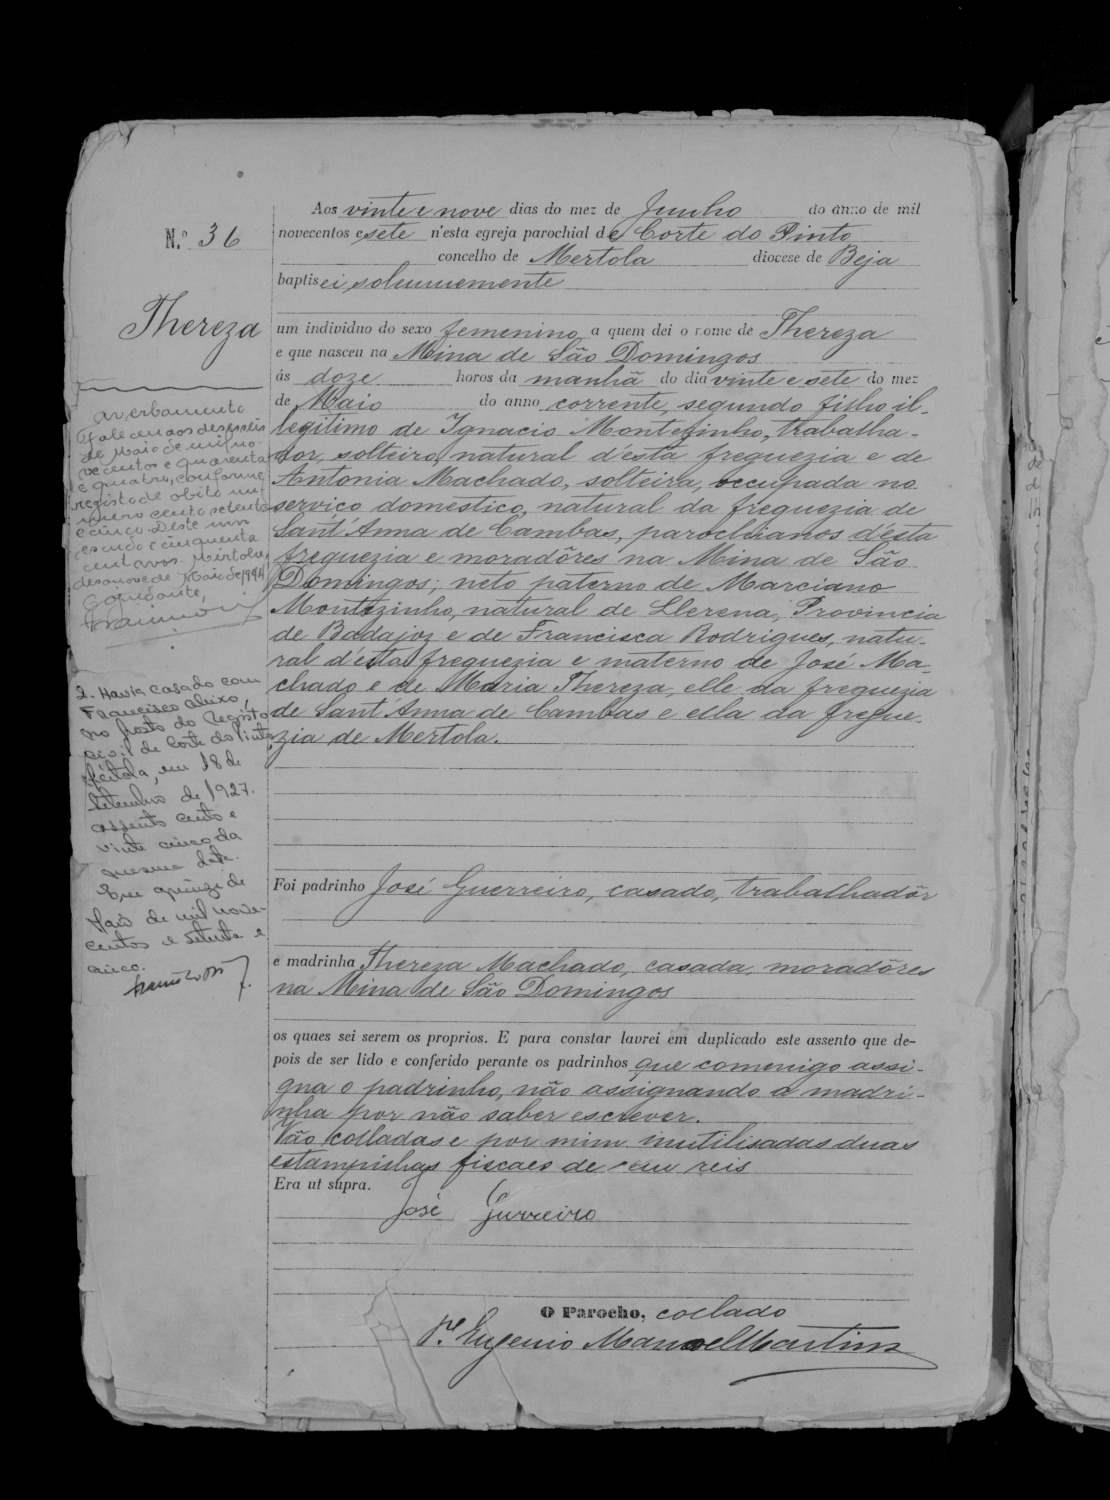 N.º 36
Thereza
Aos vinte e nove dias do mez de Junho do anno de mil
novecentos e sete n'esta egreja parochial de Corte do Pinto
concelho de Mertola diocese de Beja
baptisei solemnemente
um individuo do sexo femenino a quem dei o nome de Thereza
e que nasceu na Mina de São Domingos
ás doze horos da manhã do dia vinte e sete do mez
de Maio do anno corrente, segundo filho il-
legitimo de Ignacio Montezinho, trabalha-
dor, solteiro, natural d'esta freguezia e de
Antonia Machado, solteira, occupada no
serviço domestico, natural da freguezia de
Sant'Anna de Cambas, parochianos d'esta
freguezia e moradôres na Mina de São
Domingos; neto paterno de Marciano
Montezinho, natural de Llerena, Provincia
de Badajoz e de Francisca Rodrigues, natu-
ral d'esta freguezia e materno de José Ma-
chado e de Maria Thereza, elle da freguezia
de Sant'Anna de Cambas e ella da fregue-
zia de Mertola.
Foi padrinho José Guerreiro, casado, trabalhadôr
e madrinha Thereza Machado, casada, moradôres
na Mina de São Domingos
os quaes sei serem os proprios. E para constar lavrei em duplicado este assento que de-
pois de ser lido e conferido perante os padrinhos que comenigo assi-
gna o padrinho, não assignando a madri-
nha por não saber escrever.
Vão colladas e por mim inutilisadas duas
estampilhas fiscaes de cem reis
Era ut supra.
José Gurreiro
O Parocho, collado
P.e Eugenio Manoel Martins
averbamento
Faleceu aos dezesseis
de Maio de mil no-
vecentos e quarenta
e quatro, conforme
registo de obito nu-
mero cento setenta
e cinco. Deste um
escudo e cinquenta
centavos. Mertola,
desanove de Maio de 1944
O ajudante,
2. Havia casado com
Francisco Aleixo,
no Posto do Registo
Civil de Corte do Pinto
Mértola, em 18 de
Setembro de 1927.
assento cento e
vinte cinco da
mesma data.
Em quinze de
Maio de mil nove-
centos e setenta e
cinco.